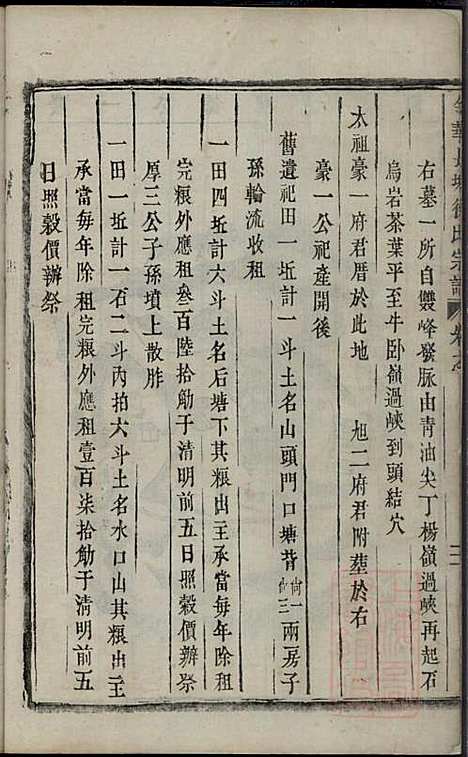 金華長塘徐氏宗譜 卷之
右墓一所自雙峰發脉由青油尖丁楊嶺過峽再起石
烏岩茶葉平至牛卧嶺過峽到頭結穴
太祖豪一府君厝於此地 旭二府君附塟於右
豪一公祀產開後
舊遺祀田一坵計一斗土名山頭門口塘背尙一尙三兩房子
孫輪流收租
一田四坵計六斗土名后塘下其粮出主承當每年除租
完粮外應租叁百陸拾觔于清明前五日照穀價辦祭
厚三公子孫墳上散胙
一田一坵計一石二斗內拍六斗土名水口山其粮出主
承當每年除租完粮外應租壹百柒拾觔于清明前五
日照穀價辦祭